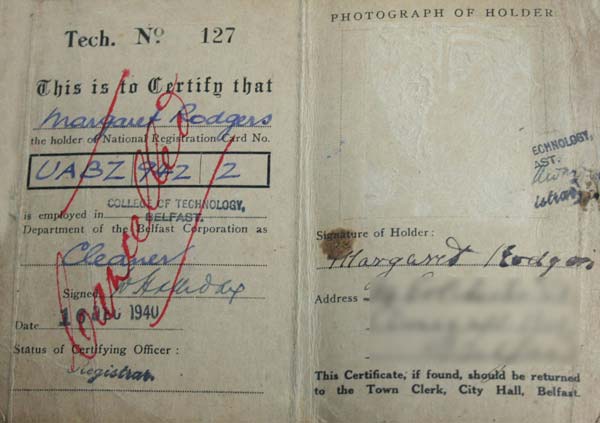 Tech. No 127
This is to Certify that
Margaret Rodgers
the holder of National Registration Card No.
UABZ 942 2
is employed in COLLEGE OF TECHNOLOGY, BELFAST.
Department of the Belfast Corporation as
Cleaner
Signed
Date 1940
Status of Certifying Officer :
Registrar
Cancelled
PHOTOGRAPH OF HOLDER
ECHNOLOGY,
AST.
istrar
Signature of Holder :
Margaret Rodgers
Address
This Certificate, if found, should be returned
to the Town Clerk, City Hall, Belfast.